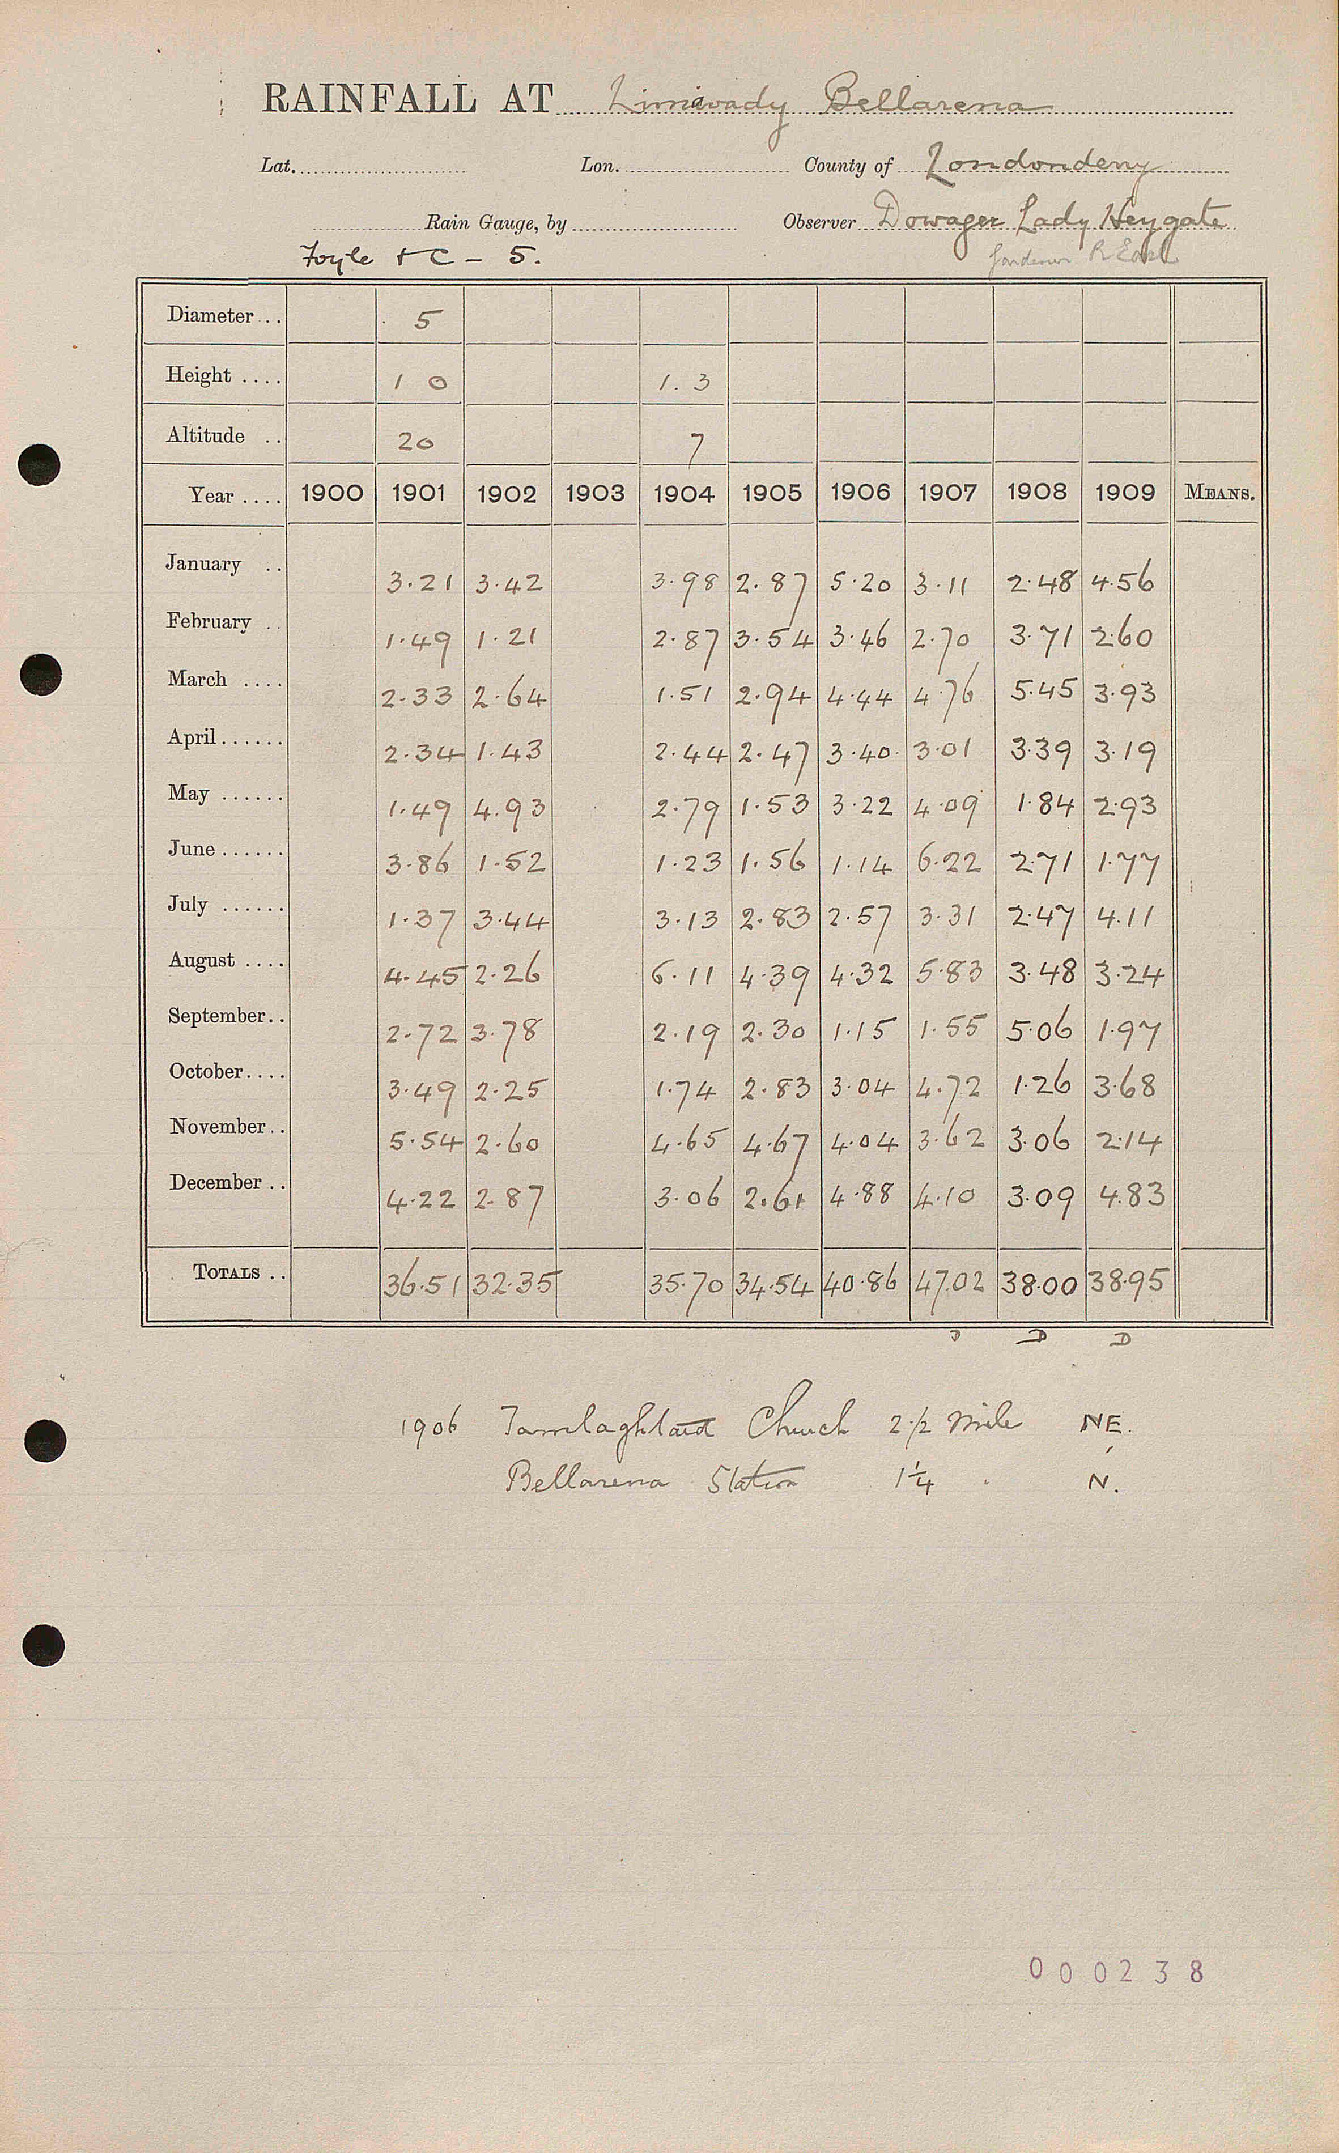 RAINFALL AT Limavady Bellarena
Lat. Lon. County of Londonderry
Rain Gauge, by Observer Dowager Lady Heygate
Foyle &c - 5. Gardener R
Diameter... 5
Height .... 1 0 1.3
Altitude .. 20 7
Year .... 1900 1901 1902 1903 1904 1905 1906 1907 1908 1909 MEANS.
January .. 3.21 3.42 3.98 2.87 5.20 3.11 2.48 4.56
February .. 1.49 1.21 2.87 3.54 3.46 2.70 3.71 2.60
March .... 2.33 2.64 1.51 2.94 4.44 4.76 5.45 3.93
April...... 2.34 1.43 2.44 2.47 3.40 3.01 3.39 3.19
May ...... 1.49 4.93 2.79 1.53 3.22 4.09 1.84 2.93
June...... 3.86 1.52 1.23 1.56 1.14 6.22 2.71 1.77
July ...... 1.37 3.44 3.13 2.83 2.57 3.31 2.47 4.11
August .... 4.45 2.26 6.11 4.39 4.32 5.83 3.48 3.24
September.. 2.72 3.78 2.19 2.30 1.15 1.55 5.06 1.97
October.... 3.49 2.25 1.74 2.83 3.04 4.72 1.26 3.68
November.. 5.54 2.60 4.65 4.67 4.04 3.62 3.06 2.14
December .. 4.22 2.87 3.06 2.61 4.88 4.10 3.09 4.83
TOTALS .. 36.51 32.35 35.70 34.54 40.86 47.02 38.00 38.95
D D D
1906 Tamlaghtard Church 2 1/2 Mile NE.
Bellarena Station 1 1/4 . N.
000238